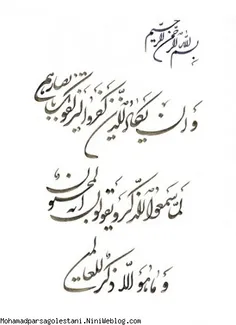 بسم الله الرحمن الرحیم
وان یکاد الذین کفروا لیزلقونک بابصارهم
لما سمعوا الذکر و یقولون انه لمجنون
و ما هو الا ذکر للعالمین
Mohamadparsagolestani.NiniWeblog.com